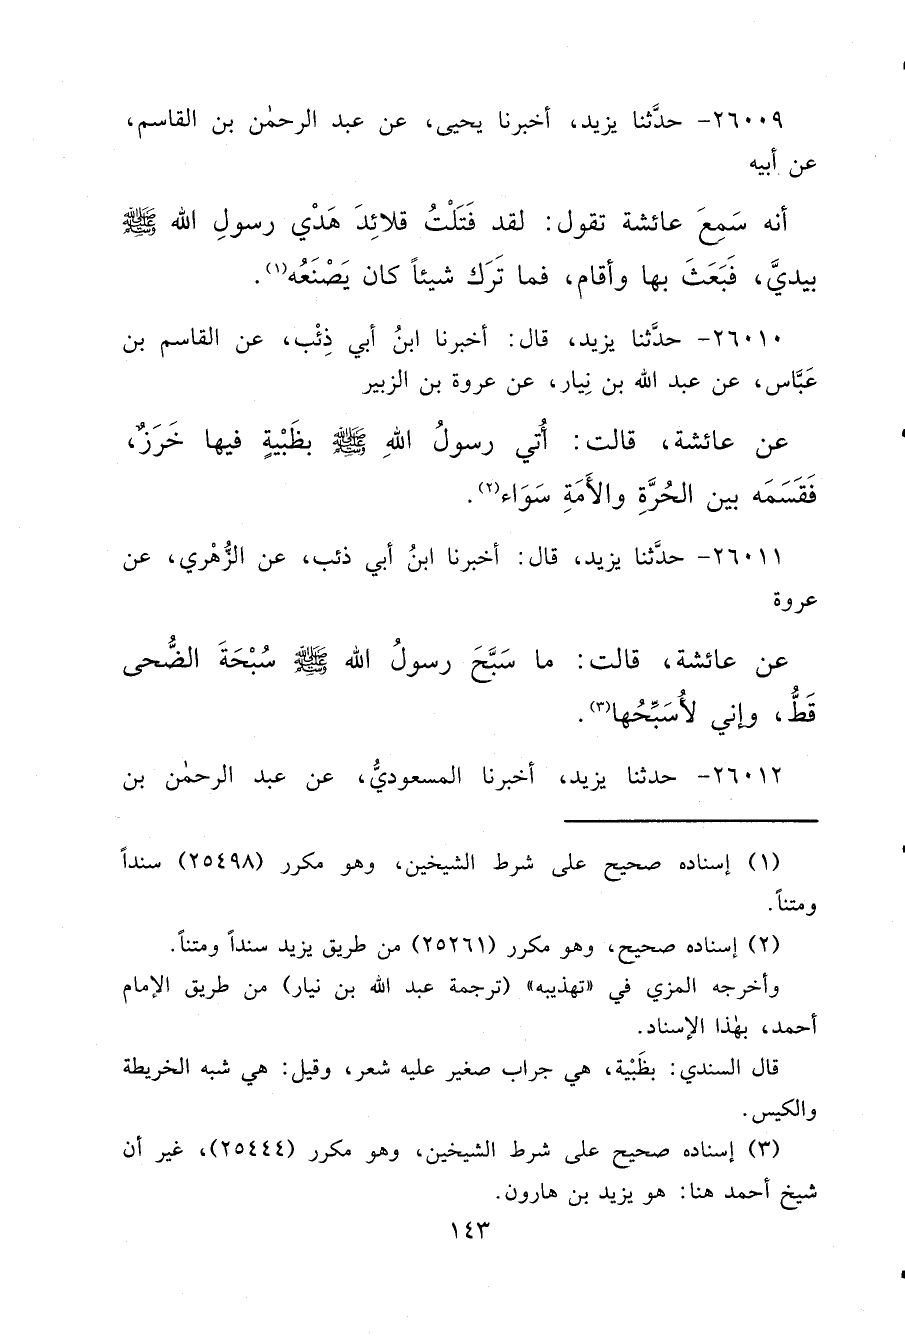 ٢٦٠٠٩- حدَّثنا يزيد، أخبرنا يحيى، عن عبد الرحمٰن بن القاسم،
عن أبيه
أنه سَمِعَ عائشة تقول: لقد فَتَلْتُ قلائِدَ هَدْيِ رسولِ الله ﷺ
بيديَّ، فَبَعَثَ بها وأقام، فما تَرَك شيئاً كان يَصْنَعُه(١).
٢٦٠١٠- حدَّثنا يزيد، قال: أخبرنا ابنُ أبي ذِئْب، عن القاسم بن
عَبَّاس، عن عبد الله بن نِيار، عن عروة بن الزبير
عن عائشة، قالت: أُتي رسولُ اللهِ ﷺ بظَبْيةٍ فيها خَرَزٌ،
فَقَسَمَه بين الحُرَّةِ والأَمَةِ سَوَاء(٢).
٢٦٠١١- حدَّثنا يزيد، قال: أخبرنا ابنُ أبي ذئب، عن الزُّهْري، عن
عروة
عن عائشة، قالت: ما سَبَّحَ رسولُ الله ﷺ سُبْحَةَ الضُّحى
قَطُّ، وإني لأُسَبِّحُها(٣).
٢٦٠١٢- حدثنا يزيد، أخبرنا المسعوديُّ، عن عبد الرحمٰن بن
(١) إسناده صحيح على شرط الشيخين، وهو مكرر (٢٥٤٩٨) سنداً
ومتناً.
(٢) إسناده صحيح، وهو مكرر (٢٥٢٦١) من طريق يزيد سنداً ومتناً.
وأخرجه المزي في «تهذيبه» (ترجمة عبد الله بن نيار) من طريق الإمام
أحمد، بهٰذا الإسناد.
قال السندي: بظَبْية، هي جراب صغير عليه شعر، وقيل: هي شبه الخريطة
والكيس.
(٣) إسناده صحيح على شرط الشيخين، وهو مكرر (٢٥٤٤٤)، غير أن
شيخ أحمد هنا: هو يزيد بن هارون.
١٤٣